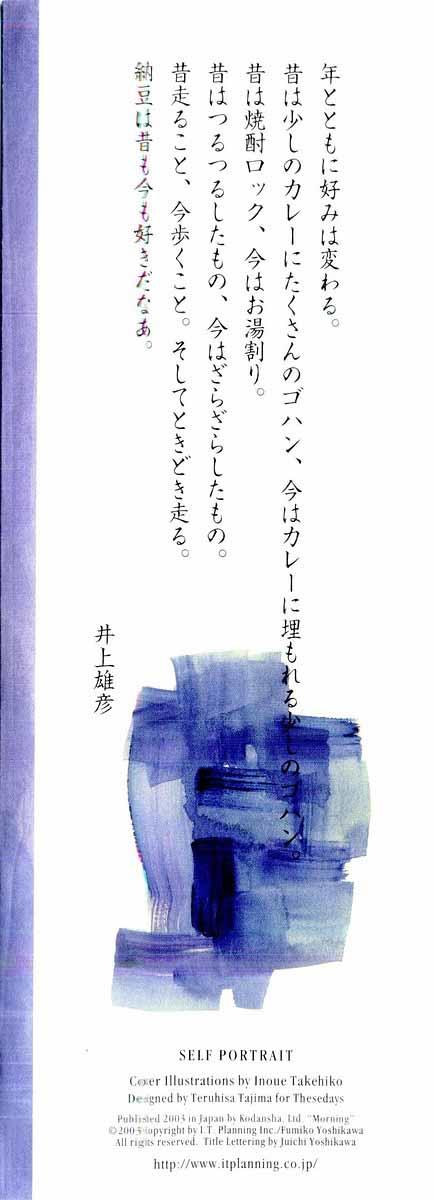 年とともに好みは変わる。
昔は少しのカレーにたくさんのゴハン、今はカレーに埋もれる少しのゴハン。
昔は焼酎ロック、今はお湯割り。
昔はつるつるしたもの、今はざらざらしたもの。
昔走ること、今歩くこと。そしてときどき走る。
納豆は昔も今も好きだなぁ。
井上雄彦
SELF PORTRAIT
Cover Illustrations by Inoue Takehiko
Designed by Teruhisa Tajima for Thesedays
Published 2003 in Japan by Kodansha, Ltd. "Morning"
©2003 Copyright by I.T. Planning Inc./Fumiko Yoshikawa
All rights reserved. Title Lettering by Juichi Yoshikawa
http://www.itplanning.co.jp/